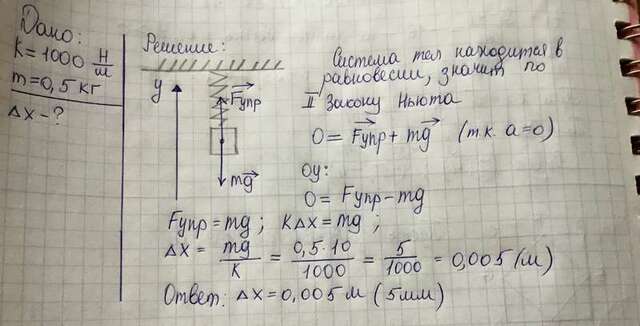 Дано:
k = 1000 Н/м
m = 0,5 кг
Δx - ?
Решение:
y
Fупр
mg
Система тел находится в
равновесии, значит по
II Закону Ньюта
0 = Fупр + mg (т.к. a = 0)
Oy:
0 = Fупр - mg
Fупр = mg ; kΔx = mg ;
Δx = mg/k = 0,5·10/1000 = 5/1000 = 0,005 (м)
Ответ: Δx = 0,005 м (5мм)